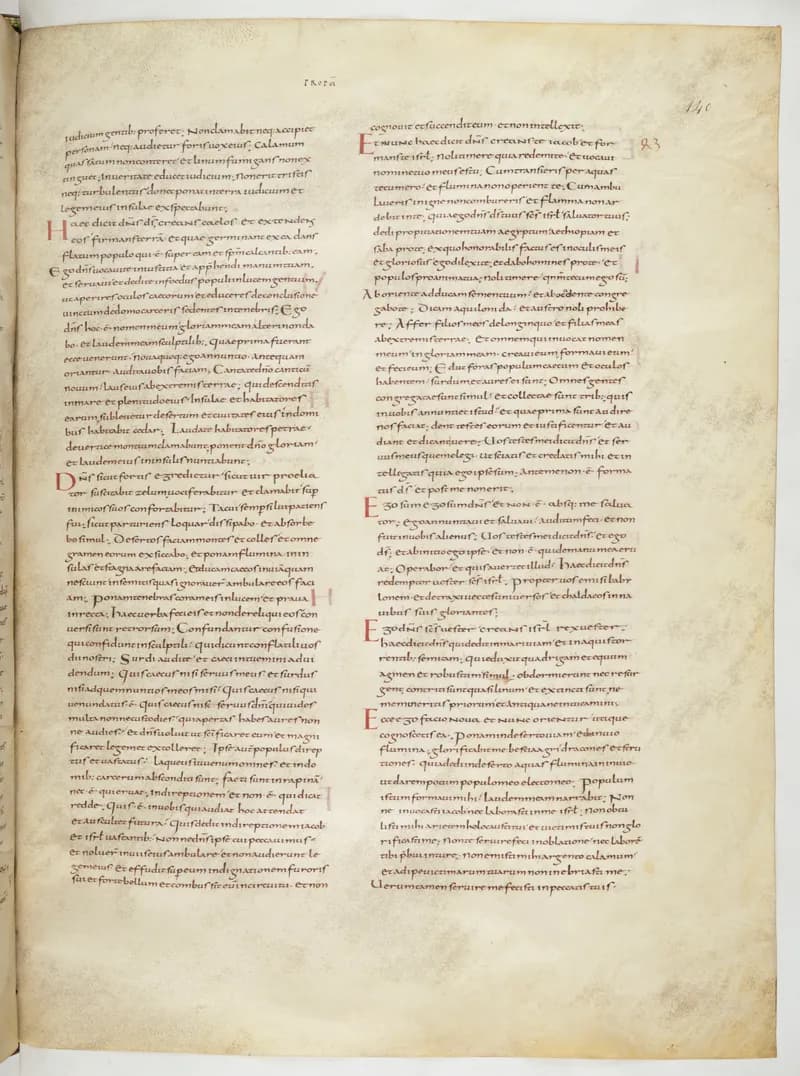 PROPħ
140
iudicium gentib; proferet; Non clamabit neq; accipiet
personam; neq; audietur foris uox eius; Calamum
quassatum non conteret et linum fumigans non ex
tinguet; In ueritate educet iudicium; non erit tristis
neq; turbulentus donec ponat in terra iudicium et
legem eius insulae exspectabunt;
Haec dicit dñs dš creans caelos et extendens
eos firmans terrã et quae germinant ex ea dans
flatum populo qui ẽ super eam et spm calcantib; eam;
Ego dñs uocaui te in iustitia et apphendi manum tuam;
et seruaui et dedi te in foedus populi in lucem gentium;
ut aperires oculos caecorum et educeres de conclusione
uinctum de domo carceris sedentes in tenebris; Ego
dñs hoc ẽ nomen meum gloriam meam alteri non da
bo et laudem meam sculptilib; Quae prima fuerant
ecce uenerunt noua quoq; ego annuntio Antequam
oriantur audita uobis faciam; Cantate dño canticũ
nouum laus eius ab extremis terrae; qui descenditis
in mare et plenitudo eius Insulae et habitatores
earum subleuetur desertum et ciuitates eius in domi
bus habitabit cedar; Laudate habitatores petrae
de uertice montium clamabunt; ponent dño gloriam
et laudem eius in insulis nuntiabunt;
Dñs sicut fortis egredietur sicut uir proelia
tor suscitabit zelum uociferabitur et clamabit sup
inimicos suos confortabitur; Tacui semp silui patiens
fui; sicut parturiens loquar dissipabo et absorbe
bo simul; Desertos faciam montes et colles et omne
gramen eorum exsiccabo et ponam flumina in in
sulas et stagna arefaciam; Educam caecos in uiã quam
nesciunt in semitis quas ignorauer̃ ambulare eos faci
am; Ponam tenebras coram eis in lucem et praua
in recta; haec uerba feci eis et non dereliqui eos con
uersi sunt retrorsum; Confundantur confusione
qui confidunt in sculptili qui dicunt conflatili uos
dii nostri; Surdi audite et caeci intuemini ad ui
dendum; Quis caecus nisi seruus meus et surdus
nisi ad quem nuntios meos misi; Quis caecus nisi qui
uenundatus ẽ Quis caecus nisi seruus dñi qui uides
multa nonne custodies qui apertas habes aures non
ne audies; et dñs uoluit ut scificaret eum et magni
ficaret legem et extolleret; Ipse aut̃ populus direp
tus et uastatus; Laqueus iuuenum omnes et in do
mib; carcerum absconditi sunt; facti sunt in rapinã
nec ẽ qui eruat; In direptionem et non ẽ qui dicat
redde; Quis ẽ in uobis qui audiat hoc attendat
et auscultet futura; Quis dedit in direptionem iacob
et isrl uastantib; Nonne dñs ipse cui peccauimus
et noluer̃ in uiis eius ambulare et non audierunt le
gem eius et effudit sup eum indignationem furoris
sui et forte bellum et combussit eũ in circuitu et non
cognouit et succendit eum et non intellexit;
Et nunc haec dicit dñs creans te iacob et for
83
mans te isrl; Noli timere quia redemi te et uocaui
nomine tuo meus es tu; Cum transieris per aquas
tecum ero et flumina non operient te; Cum ambu
laueris in igne non combureris et flamma non ar
debit in te; quia ego dñs dš tuus scs isrl saluator tuus;
dedi propitiationem tuam aegyptum aethiopiam et
saba pro te; ex quo honorabilis factus es in oculis meis
et gloriosus ego dilexi te; et dabo homines pro te et
populos pro anima tua; noli timere qnm tecum ego sũ;
Ab oriente adducam semen tuum et ab occidente congre
gabo te; Dicam aquiloni da et austro noli prohibe
re; Affer filios meos de longinquo et filias meas
ab extremis terrae; Et omnem qui inuocat nomen
meum in gloriam meam creaui eum formaui eum
et feci eum; Educ foras populum caecum et oculos
habentem surdum et aures ei sunt; Omnes gentes
congregatae sunt simul et collectae sunt trib; quis
in uobis annuntiet istud et quae prima sunt audire
nos faciat; dent testes eorum et iustificentur et au
diant et dicant uere; Uos testes mei dicit dñs et ser
uus meus quem elegi ut sciatis et credatis mihi et in
tellegatis quia ego ipse sum; Ante me non ẽ forma
tus dš et post me non erit;
Ego sum ego sum dñs et non ẽ absq; me salua
tor; ego annuntiaui et saluaui auditum feci et non
fuit in uobis alienus; Uos testes mei dicit dñs et ego
dš; et ab initio ego ipse et non ẽ qui de manu mea eru
at; Operabor et quis auertet illud; haec dicit dñs
redemptor uester scs isrl; Propter uos emisi in babi
lonem et detraxi uectes uniuersos et chaldaeos in na
uibus suis gloriantes;
Ego dñs scs uester creans isrl rex uester;
haec dicit dñs qui dedit in mari uiam et in aquis tor
rentib; semitam; qui eduxit quadrigam et equum
agmen et robustum simul obdormierunt nec resur
gent; contriti sunt quasi linum et extincti sunt; ne
memineritis priorum et antiqua ne intueamini;
Ecce ego facio noua et nunc orientur utique
cognoscetis ea; Ponam in deserto uiam et in inuio
flumina; glorificabit me bestia agri dracones et stru
tiones; quia dedi in deserto aquas flumina in inuio
ut darem potum populo meo electo meo; Populum
istum formaui mihi laudem meam narrabit; Non
me inuocasti iacob nec laborasti in me isrl; Non obtu
listi mihi arietem holocausti tui et uictimis tuis non glo
rificasti me; non te seruire feci in oblatione nec laborẽ
tibi pbui in ture; non emisti mihi argento calamum
et adipe uictimarum tuarum non inebriasti me;
Uerumtamen seruire me fecisti in peccatis tuis;